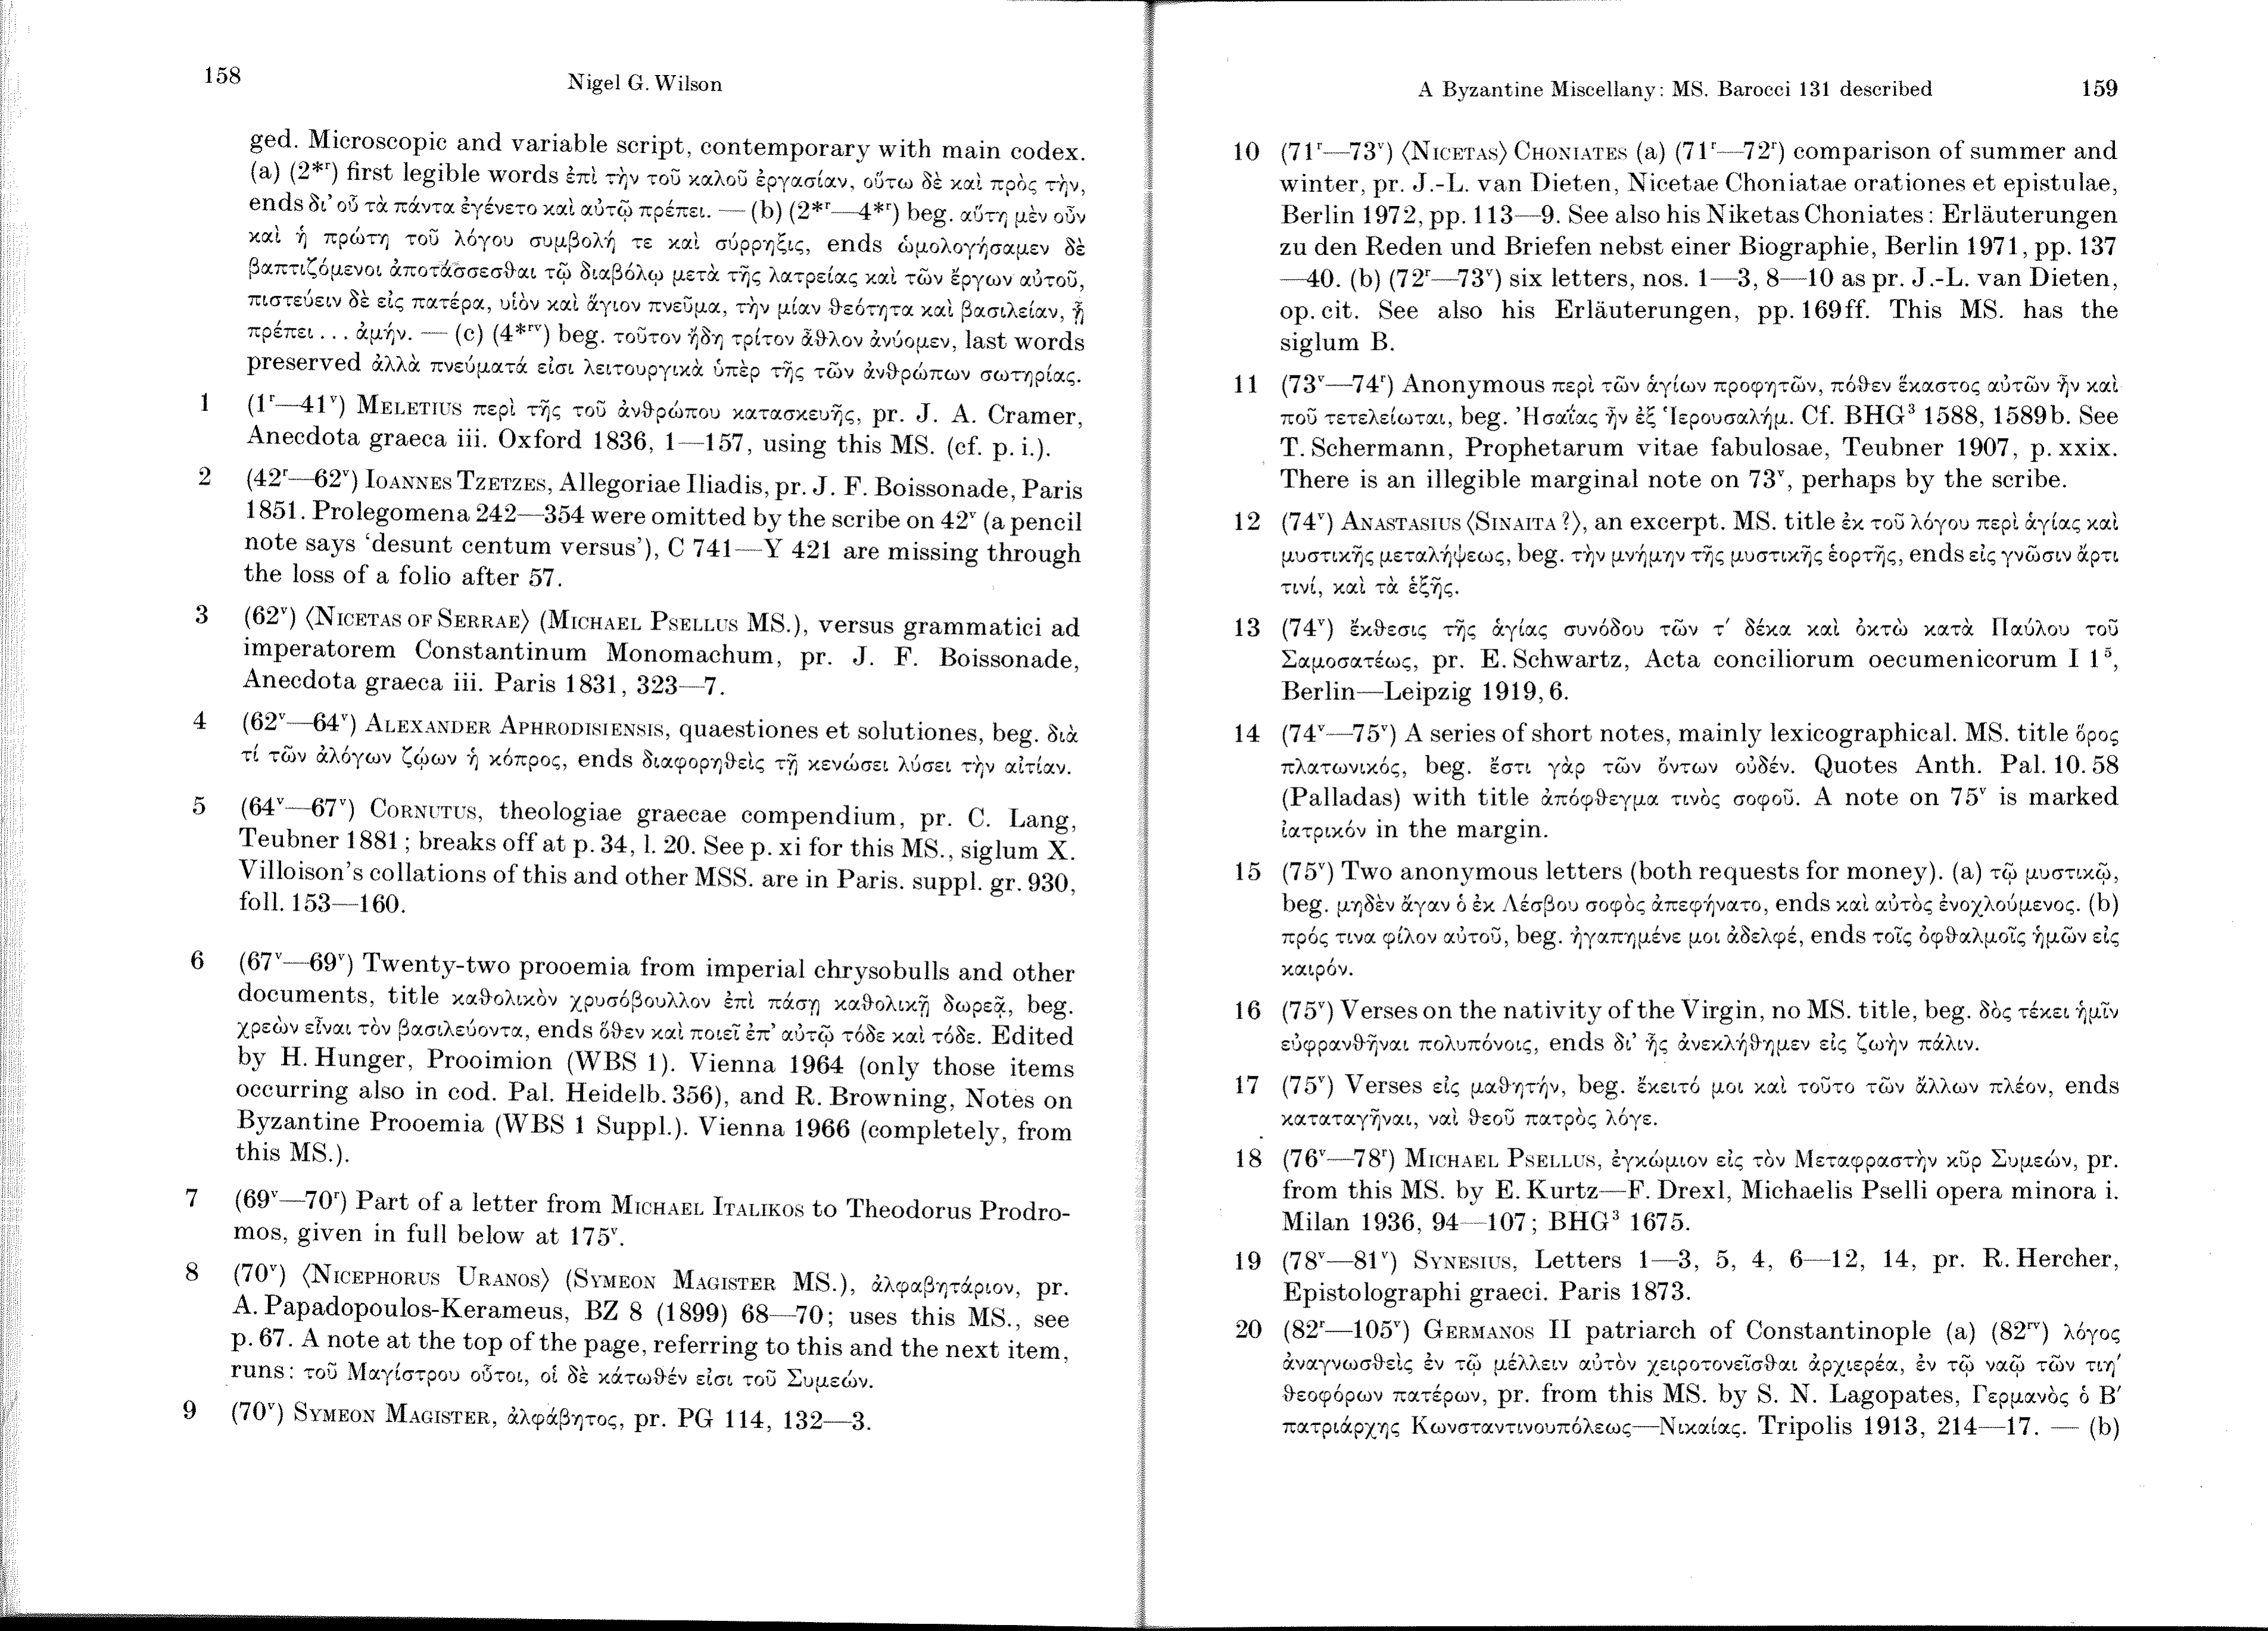 158
Nigel G. Wilson
ged. Microscopic and variable script, contemporary with main codex.
(a) (2*ʳ) first legible words ἐπὶ τὴν τοῦ καλοῦ ἐργασίαν, οὕτω δὲ καὶ πρὸς τὴν,
ends δι’ οὗ τὰ πάντα ἐγένετο καὶ αὐτῷ πρέπει. — (b) (2*ʳ—4*ʳ) beg. αὕτη μὲν οὖν
καὶ ἡ πρώτη τοῦ λόγου συμβολή τε καὶ σύρρηξις, ends ὡμολογήσαμεν δὲ
βαπτιζόμενοι ἀποτάσσεσθαι τῷ διαβόλῳ μετὰ τῆς λατρείας καὶ τῶν ἔργων αὐτοῦ,
πιστεύειν δὲ εἰς πατέρα, υἱὸν καὶ ἅγιον πνεῦμα, τὴν μίαν θεότητα καὶ βασιλείαν, ᾗ
πρέπει . . . ἀμήν. — (c) (4*ʳᵛ) beg. τοῦτον ἤδη τρίτον ἆθλον ἀνύομεν, last words
preserved ἀλλὰ πνεύματά εἰσι λειτουργικὰ ὑπὲρ τῆς τῶν ἀνθρώπων σωτηρίας.
1 (1ʳ—41ᵛ) MELETIUS περὶ τῆς τοῦ ἀνθρώπου κατασκευῆς, pr. J. A. Cramer,
Anecdota graeca iii. Oxford 1836, 1—157, using this MS. (cf. p. i.).
2 (42ʳ—62ᵛ) IOANNES TZETZES, Allegoriae Iliadis, pr. J. F. Boissonade, Paris
1851. Prolegomena 242—354 were omitted by the scribe on 42ᵛ (a pencil
note says ‘desunt centum versus’), C 741—Y 421 are missing through
the loss of a folio after 57.
3 (62ᵛ) ⟨NICETAS OF SERRAE⟩ (MICHAEL PSELLUS MS.), versus grammatici ad
imperatorem Constantinum Monomachum, pr. J. F. Boissonade,
Anecdota graeca iii. Paris 1831, 323—7.
4 (62ᵛ—64ᵛ) ALEXANDER APHRODISIENSIS, quaestiones et solutiones, beg. διὰ
τί τῶν ἀλόγων ζῴων ἡ κόπρος, ends διαφορηθεὶς τῇ κενώσει λύσει τὴν αἰτίαν.
5 (64ᵛ—67ᵛ) CORNUTUS, theologiae graecae compendium, pr. C. Lang,
Teubner 1881 ; breaks off at p. 34, l. 20. See p. xi for this MS., siglum X.
Villoison’s collations of this and other MSS. are in Paris. suppl. gr. 930,
foll. 153—160.
6 (67ᵛ—69ᵛ) Twenty-two prooemia from imperial chrysobulls and other
documents, title καθολικὸν χρυσόβουλλον ἐπὶ πάσῃ καθολικῇ δωρεᾷ, beg.
χρεὼν εἶναι τὸν βασιλεύοντα, ends ὅθεν καὶ ποιεῖ ἐπ’ αὐτῷ τόδε καὶ τόδε. Edited
by H. Hunger, Prooimion (WBS 1). Vienna 1964 (only those items
occurring also in cod. Pal. Heidelb. 356), and R. Browning, Notes on
Byzantine Prooemia (WBS 1 Suppl.). Vienna 1966 (completely, from
this MS.).
7 (69ᵛ—70ʳ) Part of a letter from MICHAEL ITALIKOS to Theodorus Prodro-
mos, given in full below at 175ᵛ.
8 (70ᵛ) ⟨NICEPHORUS URANOS⟩ (SYMEON MAGISTER MS.), ἀλφαβητάριον, pr.
A. Papadopoulos-Kerameus, BZ 8 (1899) 68—70; uses this MS., see
p. 67. A note at the top of the page, referring to this and the next item,
runs: τοῦ Μαγίστρου οὗτοι, οἱ δὲ κάτωθέν εἰσι τοῦ Συμεών.
9 (70ᵛ) SYMEON MAGISTER, ἀλφάβητος, pr. PG 114, 132—3.
A Byzantine Miscellany: MS. Barocci 131 described
159
10 (71ʳ—73ᵛ) ⟨NICETAS⟩ CHONIATES (a) (71ʳ—72ʳ) comparison of summer and
winter, pr. J.-L. van Dieten, Nicetae Choniatae orationes et epistulae,
Berlin 1972, pp. 113—9. See also his Niketas Choniates: Erläuterungen
zu den Reden und Briefen nebst einer Biographie, Berlin 1971, pp. 137
—40. (b) (72ʳ—73ᵛ) six letters, nos. 1—3, 8—10 as pr. J.-L. van Dieten,
op. cit. See also his Erläuterungen, pp. 169ff. This MS. has the
siglum B.
11 (73ᵛ—74ʳ) Anonymous περὶ τῶν ἁγίων προφητῶν, πόθεν ἕκαστος αὐτῶν ἦν καὶ
ποῦ τετελείωται, beg. Ἠσαΐας ἦν ἐξ Ἱερουσαλήμ. Cf. BHG³ 1588, 1589b. See
T. Schermann, Prophetarum vitae fabulosae, Teubner 1907, p. xxix.
There is an illegible marginal note on 73ᵛ, perhaps by the scribe.
12 (74ᵛ) ANASTASIUS ⟨SINAITA ?⟩, an excerpt. MS. title ἐκ τοῦ λόγου περὶ ἁγίας καὶ
μυστικῆς μεταλήψεως, beg. τὴν μνήμην τῆς μυστικῆς ἑορτῆς, ends εἰς γνῶσιν ἄρτι
τινί, καὶ τὰ ἑξῆς.
13 (74ᵛ) ἔκθεσις τῆς ἁγίας συνόδου τῶν τ’ δέκα καὶ ὀκτὼ κατὰ Παύλου τοῦ
Σαμοσατέως, pr. E. Schwartz, Acta conciliorum oecumenicorum I 1⁵,
Berlin—Leipzig 1919, 6.
14 (74ᵛ—75ᵛ) A series of short notes, mainly lexicographical. MS. title ὅρος
πλατωνικός, beg. ἔστι γὰρ τῶν ὄντων οὐδέν. Quotes Anth. Pal. 10. 58
(Palladas) with title ἀπόφθεγμα τινὸς σοφοῦ. A note on 75ᵛ is marked
ἰατρικόν in the margin.
15 (75ᵛ) Two anonymous letters (both requests for money). (a) τῷ μυστικῷ,
beg. μηδὲν ἄγαν ὁ ἐκ Λέσβου σοφὸς ἀπεφήνατο, ends καὶ αὐτὸς ἐνοχλούμενος. (b)
πρός τινα φίλον αὐτοῦ, beg. ἠγαπημένε μοι ἀδελφέ, ends τοῖς ὀφθαλμοῖς ἡμῶν εἰς
καιρόν.
16 (75ᵛ) Verses on the nativity of the Virgin, no MS. title, beg. δὸς τέκει ἡμῖν
εὐφρανθῆναι πολυπόνοις, ends δι’ ἧς ἀνεκλήθημεν εἰς ζωὴν πάλιν.
17 (75ᵛ) Verses εἰς μαθητήν, beg. ἔκειτό μοι καὶ τοῦτο τῶν ἄλλων πλέον, ends
καταταγῆναι, ναὶ θεοῦ πατρὸς λόγε.
18 (76ᵛ—78ʳ) MICHAEL PSELLUS, ἐγκώμιον εἰς τὸν Μεταφραστὴν κῦρ Συμεών, pr.
from this MS. by E. Kurtz—F. Drexl, Michaelis Pselli opera minora i.
Milan 1936, 94—107; BHG³ 1675.
19 (78ᵛ—81ᵛ) SYNESIUS, Letters 1—3, 5, 4, 6—12, 14, pr. R. Hercher,
Epistolographi graeci. Paris 1873.
20 (82ʳ—105ᵛ) GERMANOS II patriarch of Constantinople (a) (82ʳᵛ) λόγος
ἀναγνωσθεὶς ἐν τῷ μέλλειν αὐτὸν χειροτονεῖσθαι ἀρχιερέα, ἐν τῷ ναῷ τῶν τιη’
θεοφόρων πατέρων, pr. from this MS. by S. N. Lagopates, Γερμανὸς ὁ Β’
πατριάρχης Κωνσταντινουπόλεως—Νικαίας. Tripolis 1913, 214—17. — (b)